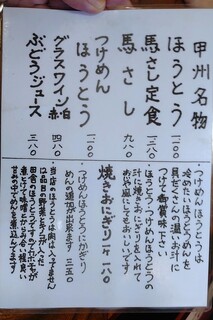 甲州名物
ほうとう 一二〇〇
馬さし定食 一三八〇
馬さし 九八〇
つけめん
ほうとう 一二〇〇
グラスワイン赤白 四八〇
ぶどうジュース 三八〇
・つけめんほうとうは
冷めたいほうとうめんを
具だくさんの温いお汁に
つけて御賞味下さい
・ほうとう・つけめんほうとうの
汁に焼きおにぎりを入れて
おじや風にしてもおいしいです!
焼きおにぎり一ケ一八〇
・つけめんほうとうにかぎり
めんの追加が出来ます 三五〇
当店のほうとうは肉は入りません
12品目の野菜ときざみ
田舎のほうとう
煮込んで味噌とからみ合い程良い
甘さの中でめんを煮込んでます